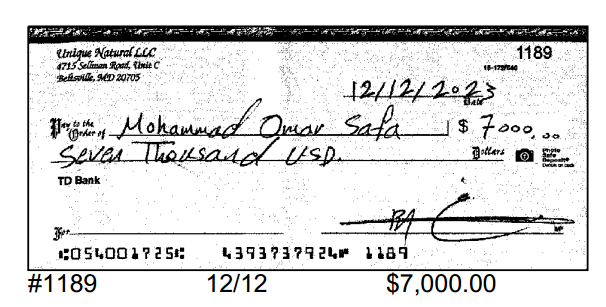 Unique Natural LLC
1189
4715 Sellman Road, Unit C
Beltsville, MD 20705
12/12/2023
Date
Pay to the
Order of Mohammad Omar Safa $ 7000.00
Seven Thousand USD. Dollars
Photo
Safe
Deposit®
Details on back
TD Bank
For
MP
⑆054001725⑆ 4393737924⑈ 1189
#1189 12/12 $7,000.00